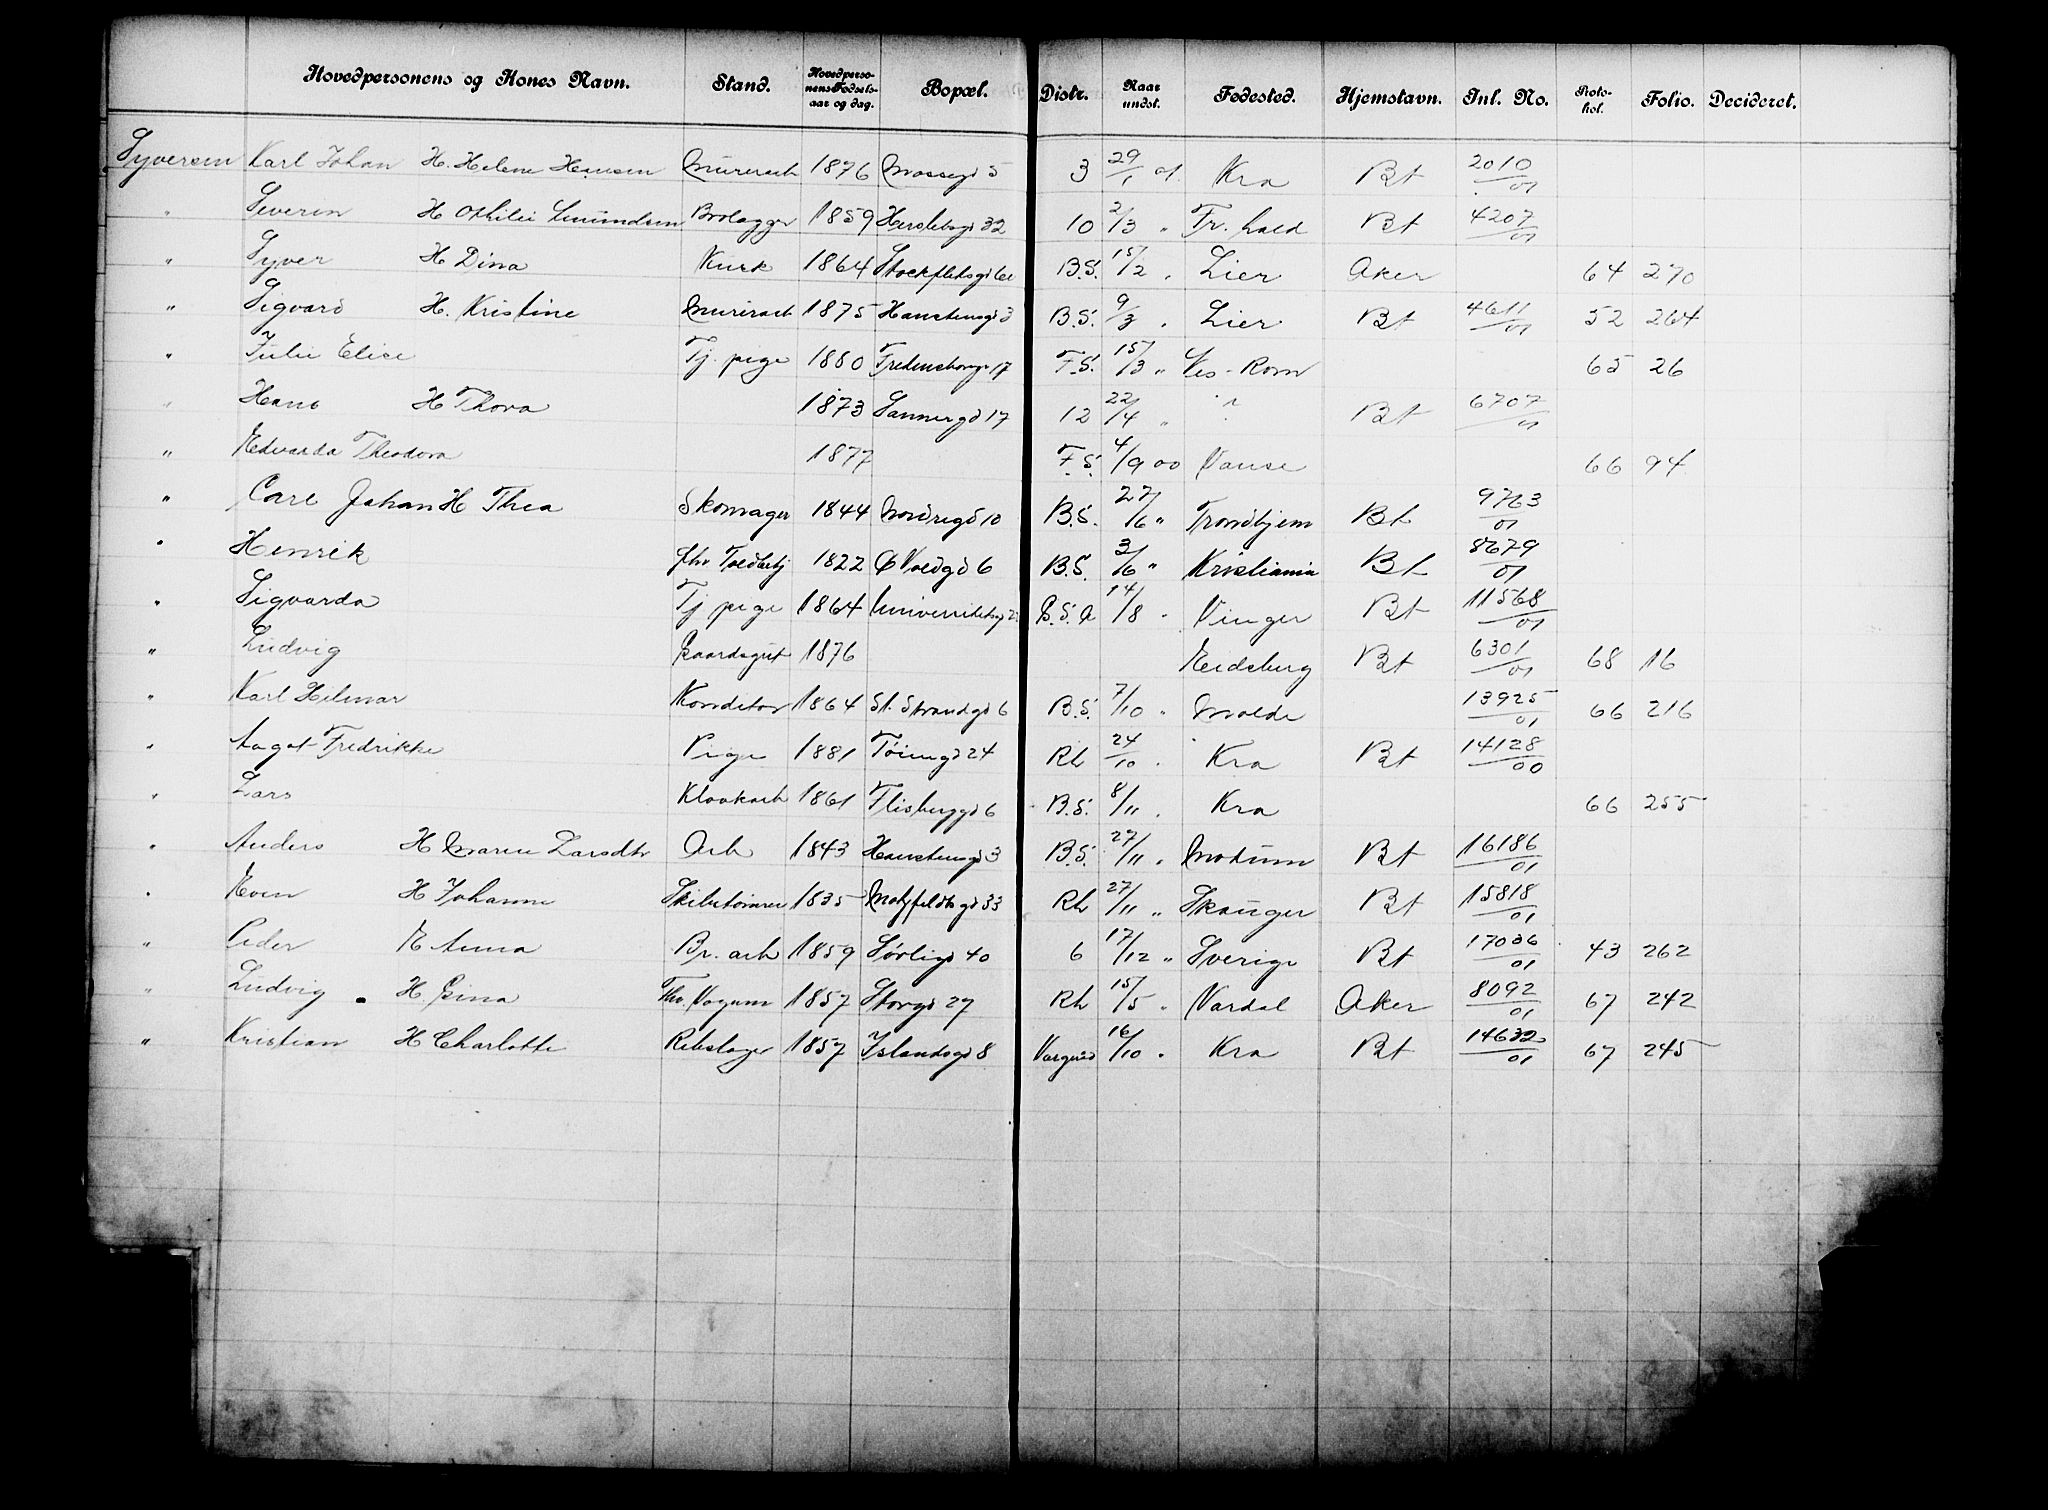 Hovedpersonens og Kones Navn. Stand. Hovedpersonens Fødselsaar og dag. Bopæl. Distr. Naar undst. Fødested. Hjemstavn. Inl. No. Protokol. Folio. Decideret.
Syversen Karl Johan H. Helene Hansen Murerarb 1876 Mossegd 5 3 29/1 01. Kra Bt 2010/01
" Severin H Othilie Brolægger 1859 Herslebsgd 32 10 2/3 " Fr. hald Bt 4207/01
" Syver H Dina Kusk 1864 Stockfletsgd B.S. 15/2 " Lier Aker 64 270
" Sigvard H. Kristine Murerarb 1875 Hanstensgd 3 B.S. 9/3 " Lier Bt 4611/01 52 264
" Julie Elise Tj. pige 1880 17 F.S. 15/3 " 65 26
" Hans H Thora 1873 Sannergd 17 12 22/4 " " Bt 6707/01
" Edvarda Theodora 1877 F.S. 4/9 00 Vanse 66 94
" Carl Johan H Thea Skomager 1844 Nordregd 10 B.S. 27/6 " Trondhjem Bt 9763/01
" Henrik fhv Toldbetj 1822 Ø Voldgd 6 B.S. 3/6 " Kristiania Bt 8679/01
" Sigvarda Tj pige 1864 Universitetsgd B.S. a 14/8 " Vinger Bt 11568/01
" Ludvig Gaardsgut 1876 Eidsberg Bt 6301/01 68 16
" Karl Hilmar Konditor 1864 St. Strandgd 6 B.S. 7/10 " Molde 13925/01 66 216
" Aagot Fredrikke Pige 1881 Tøiengd 24 Rh 24/10 " Kra Bt 14128/00
" Lars Kloakarb 1861 Flisberggd 6 B.S. 8/11 " Kra 66 255
" Anders H Maren Larsdtr Arb 1843 Hanstensgd 3 B.S. 27/11 " Modum Bt 16186/01
" Even H Johanne Skibstømrer 1835 Motzfeldtsgd 33 Rh 27/11 " Skauger Bt 15818/01
" Peder E Anna Br. arb 1859 Sørligd 40 6 17/12 " Sverige Bt 17036/01 43 262
" Ludvig H. Gina 1857 Storgd 27 Rh 15/5 " Vardal Aker 8092/01 67 242
" Kristian H Charlotte Rebslager 1857 Islandsgd 8 16/10 " Kra Bt 14632/01 67 245